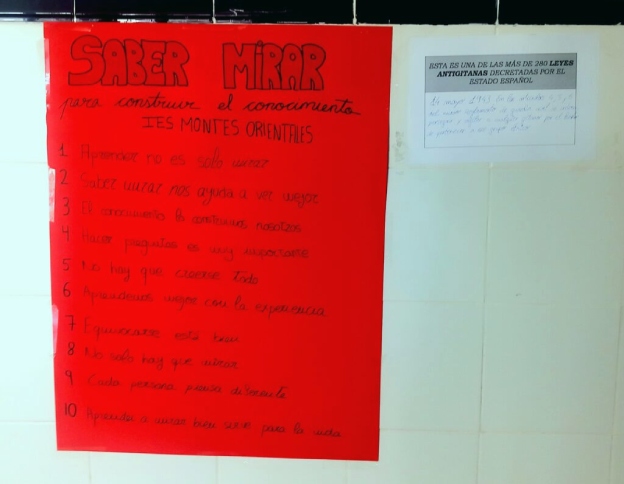 SABER MIRAR
para construir el conocimiento
IES MONTES ORIENTALES
1 Aprender no es solo mirar
2 Saber mirar nos ayuda a ver mejor
3 El conocimiento lo construimos nosotros
4 Hacer preguntas es muy importante
5 No hay que creerse todo
6 Aprendemos mejor con la experiencia
7 Equivocarse está bien
8 No solo hay que mirar
9 Cada persona piensa diferente
10 Aprender a mirar bien sirve para la vida
ESTA ES UNA DE LAS MÁS DE 280 LEYES
ANTIGITANAS DECRETADAS POR EL
ESTADO ESPAÑOL